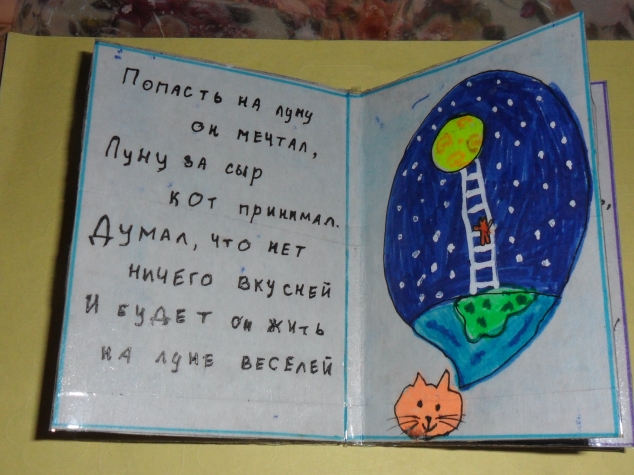 Попасть на луну
он мечтал,
Луну за сыр
кот принимал.
Думал, что нет
ничего вкусней
И будет он жить
на луне веселей